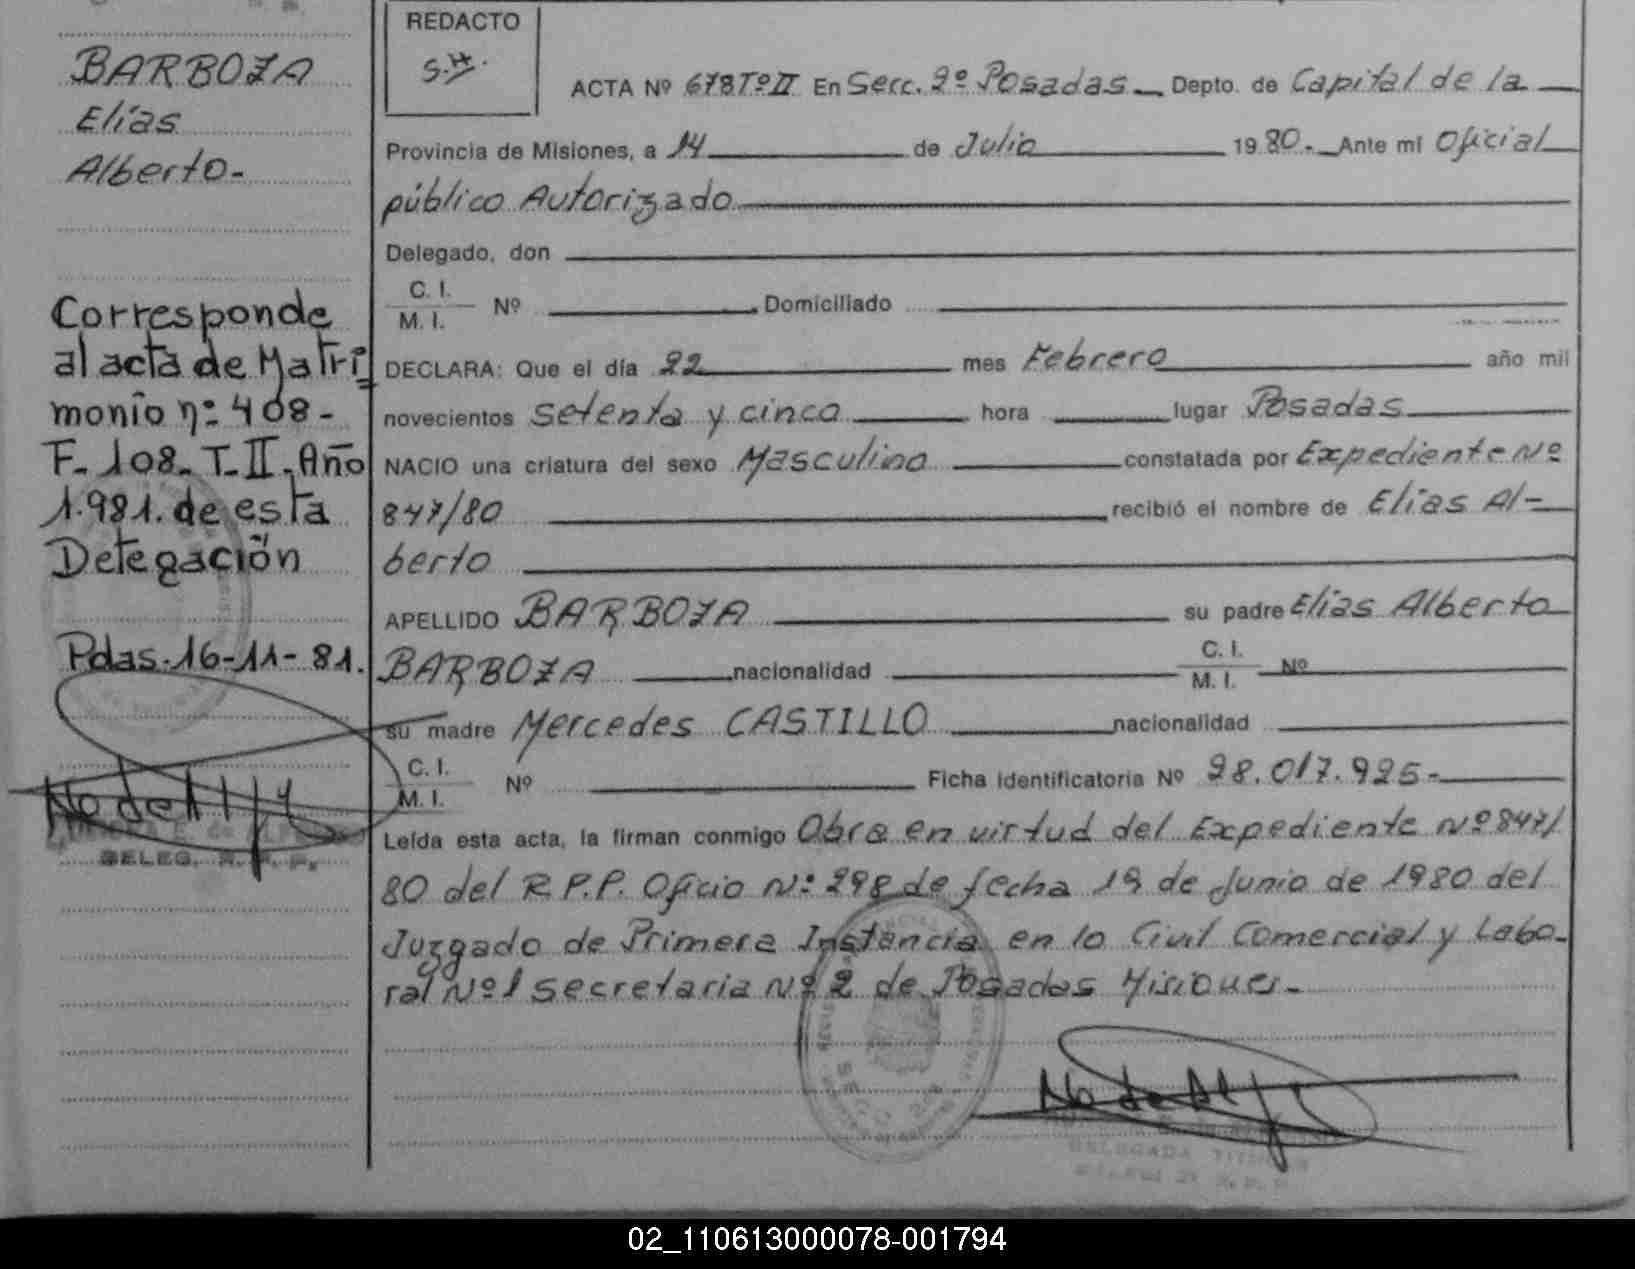 BARBOZA
Elías
Alberto.-
Corresponde
al acta de Matri
monio nº 408-
F. 108. T. II. Año
1.981. de esta
Delegación
Pdas. 16-11-81.
DELEG. R. P. P.
REDACTO
S.H.
ACTA Nº 678 Tº II En Secc. 2º Posadas Depto. de Capital de la
Provincia de Misiones, a 14 de Julio 19 80.- Ante mi Oficial
público Autorizado
Delegado, don
C. I.
M. I. Nº Domiciliado
DECLARA: Que el día 22 mes Febrero año mil
novecientos setenta y cinco hora lugar Posadas
NACIO una criatura del sexo Masculino constatada por Expediente Nº
847/80 recibió el nombre de Elías Al-
berto
APELLIDO BARBOZA su padre Elías Alberto
BARBOZA nacionalidad C. I. M. I. Nº
su madre Mercedes CASTILLO nacionalidad
C. I.
M. I. Nº Ficha Identificatoria Nº 28.017.925-
Leída esta acta, la firman conmigo Obra en virtud del Expediente Nº 847/
80 del R.P.P. Oficio Nº 298 de fecha 19 de Junio de 1980 del
Juzgado de Primera Instancia en lo Civil Comercial y Labo-
ral Nº 1 secretaria Nº 2 de Posadas Misiones.-
DELEGADA TITULAR
02_110613000078-001794